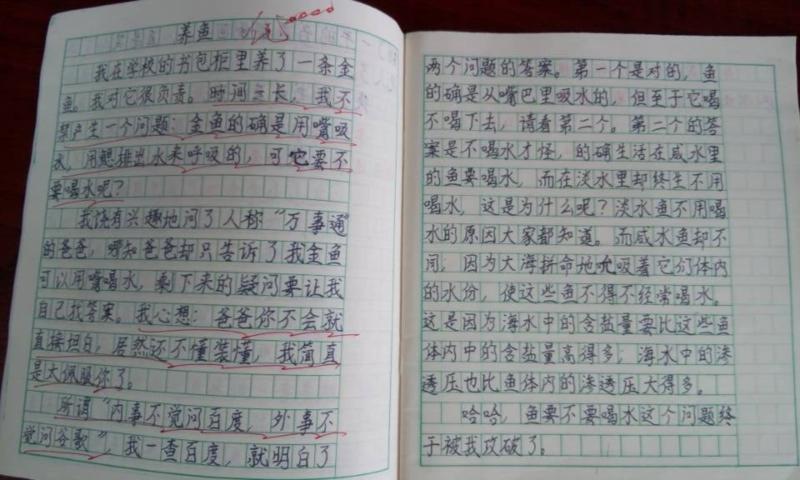 养鱼
我在学校的书包柜里养了一条金
鱼。我对它很负责。时间一长，我不
禁产生一个问题：金鱼的确是用嘴吸
水，用鳃排出水来呼吸的，可它要不
要喝水呢？
我饶有兴趣地问了人称“万事通”
的爸爸，哪知爸爸却只告诉了我金鱼
可以用嘴喝水，剩下来的疑问要让我
自己找答案。我心想：爸爸你不会就
直接坦白，居然还不懂装懂，我简直
是太佩服你了。
所谓“内事不觉问百度，外事不
觉问谷歌”，我一查百度，就明白了
两个问题的答案。第一个是对的，鱼
的确是从嘴巴里吸水的，但至于它喝
不喝下去，请看第二个。第二个的答
案是不喝水才怪，的确生活在咸水里
的鱼要喝水，而在淡水里却终生不用
喝水，这是为什么呢？淡水鱼不用喝
水的原因大家都知道。而咸水鱼却不
同，因为大海拼命地吮吸着它们体内
的水份，使这些鱼不得不经常喝水。
这是因为海水中的含盐量要比这些鱼
体内中的含盐量高得多；海水中的渗
透压也比鱼体内的渗透压大得多。
哈哈，鱼要不要喝水这个问题终
于被我攻破了。